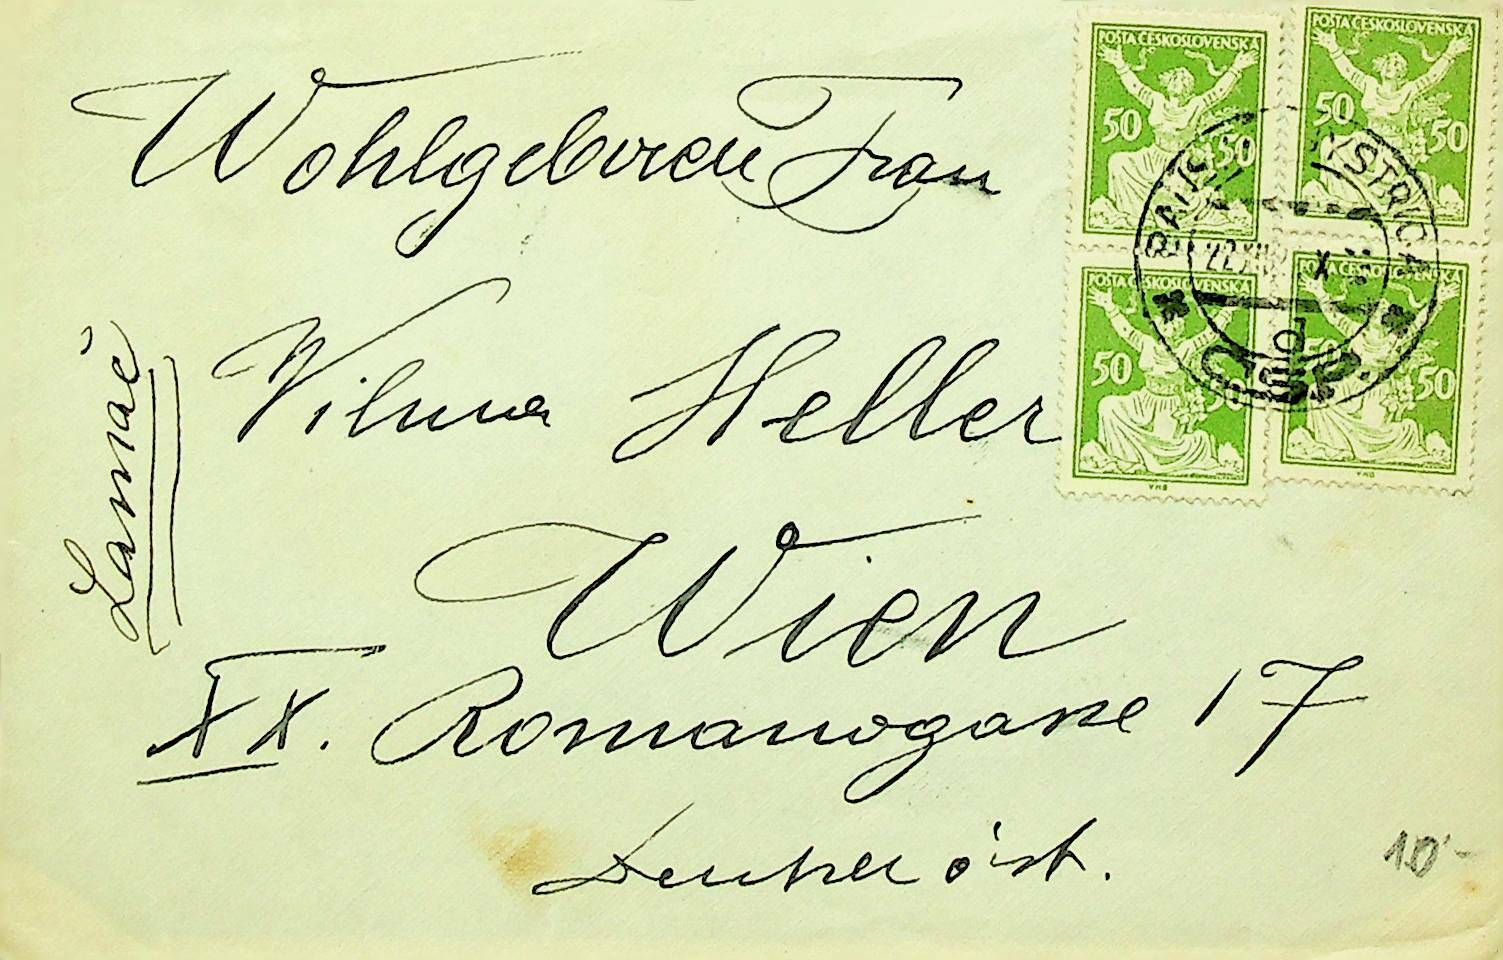 Wohlgeboren Frau
Vilma Heller
Wien
XX. Romanogasse 17
Deutschöst.
Lamač
POŠTA ČESKOSLOVENSKÁ
50 50
POŠTA ČESKOSLOVENSKÁ
50 50
POŠTA ČESKOSLOVENSKÁ
50 50
POŠTA ČESKOSLOVENSKÁ
50 50
BYSTRICA
ČSP
10'-